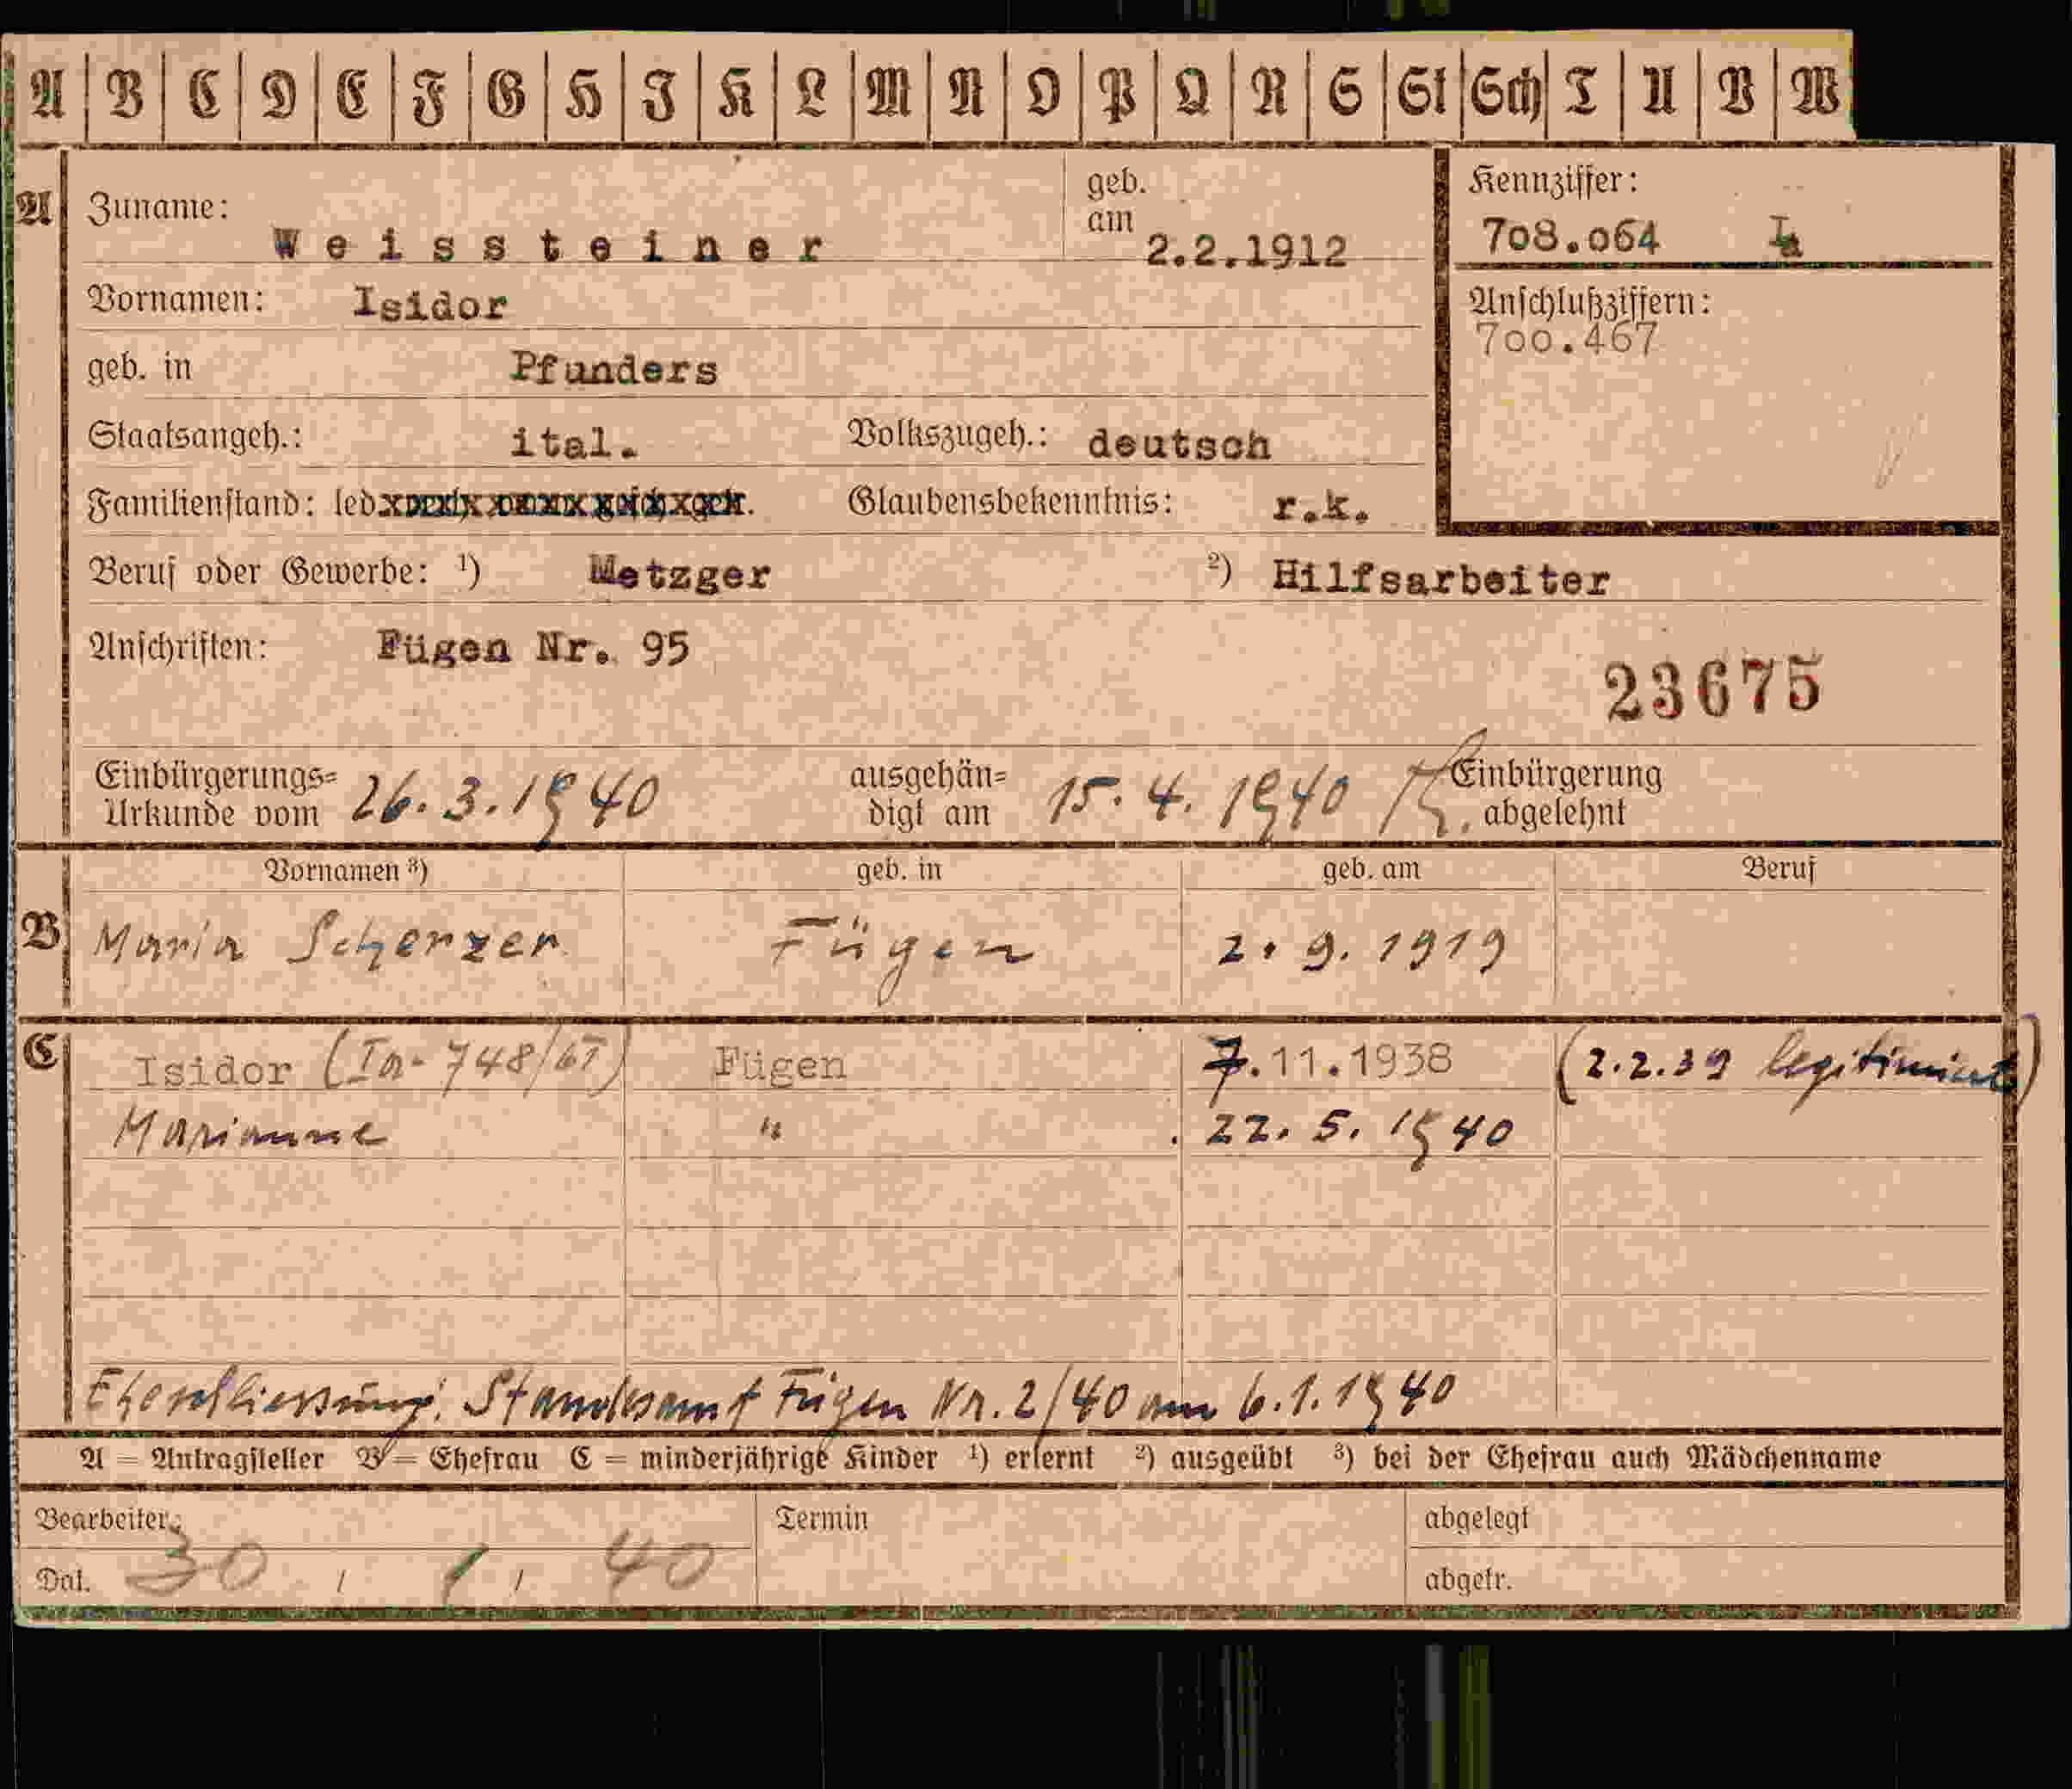 A B C D E F G H I K L M N O P Q R S St Sch T U V W
A Zuname: Weissteiner geb. am 2.2.1912 Kennziffer: 708.064
Vornamen: Isidor Anschlußziffern: 700.467
geb. in Pfunders
Staatsangeh.: ital. Volkszugeh.: deutsch
Familienstand: led. Glaubensbekenntnis: r.k.
Beruf oder Gewerbe: ¹) Metzger ²) Hilfsarbeiter
Anschriften: Fügen Nr. 95
23675
Einbürgerungs= Urkunde vom 26.3.1940 ausgehän= digt am 15.4.1940 Einbürgerung abgelehnt
Vornamen ³) geb. in geb. am Beruf
B Maria Scherzer Fügen 2.9.1919
C Isidor Fügen 7.11.1938 (2.2.39 legitimiert)
Marianne " 22.5.1940
Eheschliessung: Standesamt Fügen Nr. 2/40 am 6.1.1940
A = Antragsteller B = Ehefrau C = minderjährige Kinder ¹) erlernt ²) ausgeübt ³) bei der Ehefrau auch Mädchenname
Bearbeiter: Termin abgelegt
Dat. 30 / 1 / 40 abgetr.